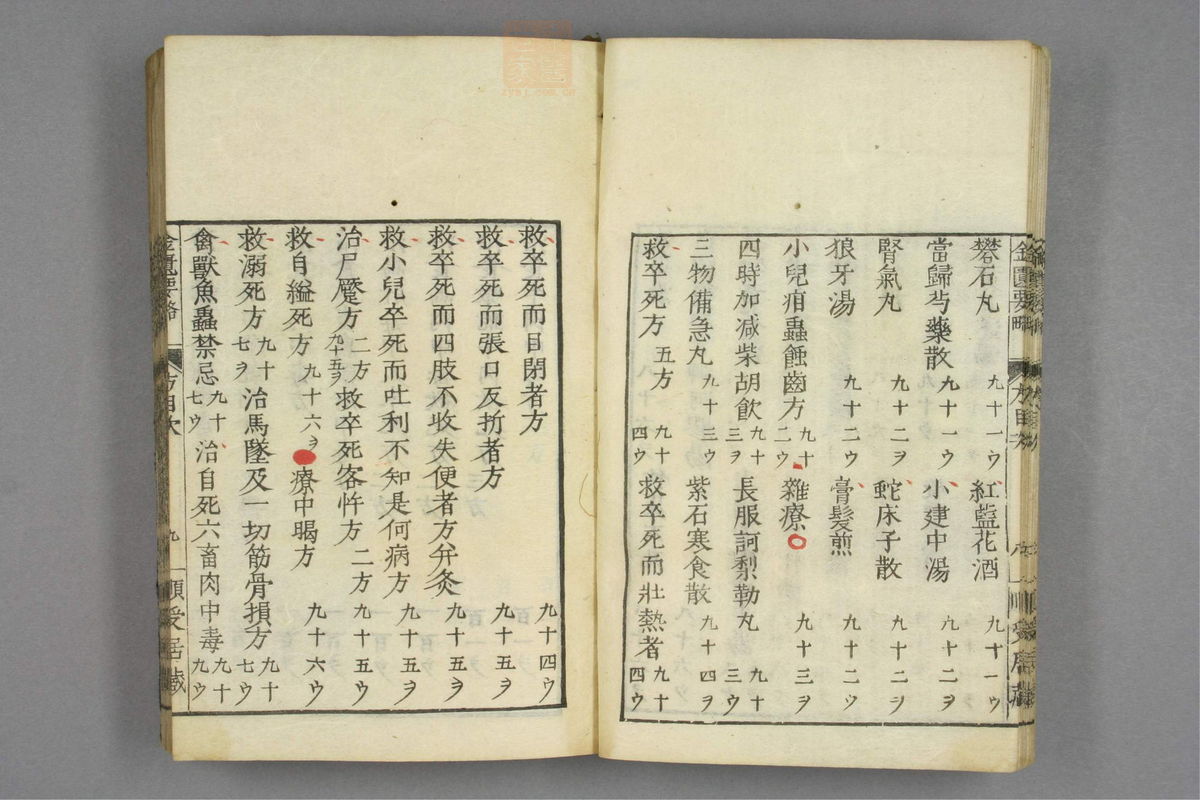 礬石丸 九十一ウ 紅藍花酒 九十一ウ
當歸芍藥散 九十一ウ 小建中湯 九十二ヲ
腎氣丸 九十二ヲ 蛇床子散 九十二ヲ
狼牙湯 九十二ウ 膏髮煎 九十二ウ
小兒疳蟲蝕齒方 九十二ウ 雜療 九十三ヲ
四時加減柴胡飲 九十三ヲ 長服訶梨勒丸 九十三ウ
三物備急丸 九十三ウ 紫石寒食散 九十四ヲ
救卒死方 五方 九十四ウ 救卒死而壯熱者 九十四ウ
救卒死而目閉者方 九十四ウ
救卒死而張口反折者方 九十五ヲ
救卒死而四肢不收失便者方弁灸 九十五ヲ
救小兒卒死而吐利不知是何病方 九十五ヲ
治尸蹷方 二方 九十五ヲ 救卒死客忤方 二方 九十五ウ
救自縊死方 九十六ヲ 療中暍方 九十六ウ
救溺死方 九十七ヲ 治馬墜及一切筋骨損方 九十七ウ
禽獸魚蟲禁忌 九十七ウ 治自死六畜肉中毒 九十九ウ
金匱要略 方目次 九 順受居藏